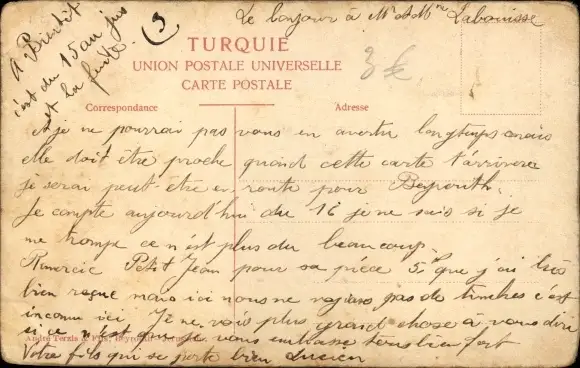 Le bonjour à Mr et Mme Labouisse
A Bientôt
c'est du 15 au jus
et la fuite.
3
TURQUIE
UNION POSTALE UNIVERSELLE
CARTE POSTALE
3 €
Correspondance
Adresse
je ne pourrai pas vous en avertir longtemps mais
elle doit être proche quand cette carte t'arrivera
je serai peut-être en route pour Beyrouth.
Je compte aujourd'hui du 16 je ne sais si je
me trompe ce n'est plus du beaucoup.
Remercie Petit Jean pour sa pièce 5f que j'ai très
bien reçue mais ici nous ne pas de timbres c'est
inconnu ici Je ne vois plus grand chose à vous dire
si ce n'est que je vous embrasse tous bien fort
André Terzis & Fils, Beyrouth
Votre fils qui se porte bien Lucien